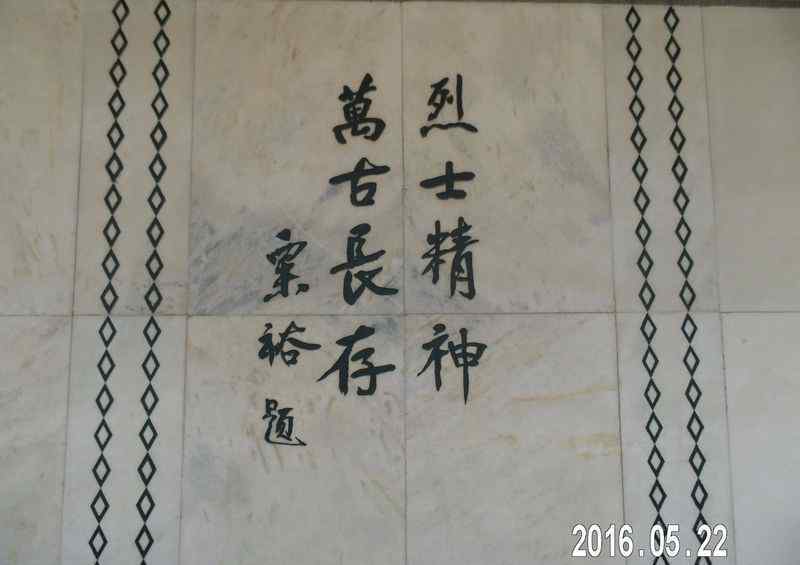 烈士精神
萬古長存
粟裕题
2016.05.22